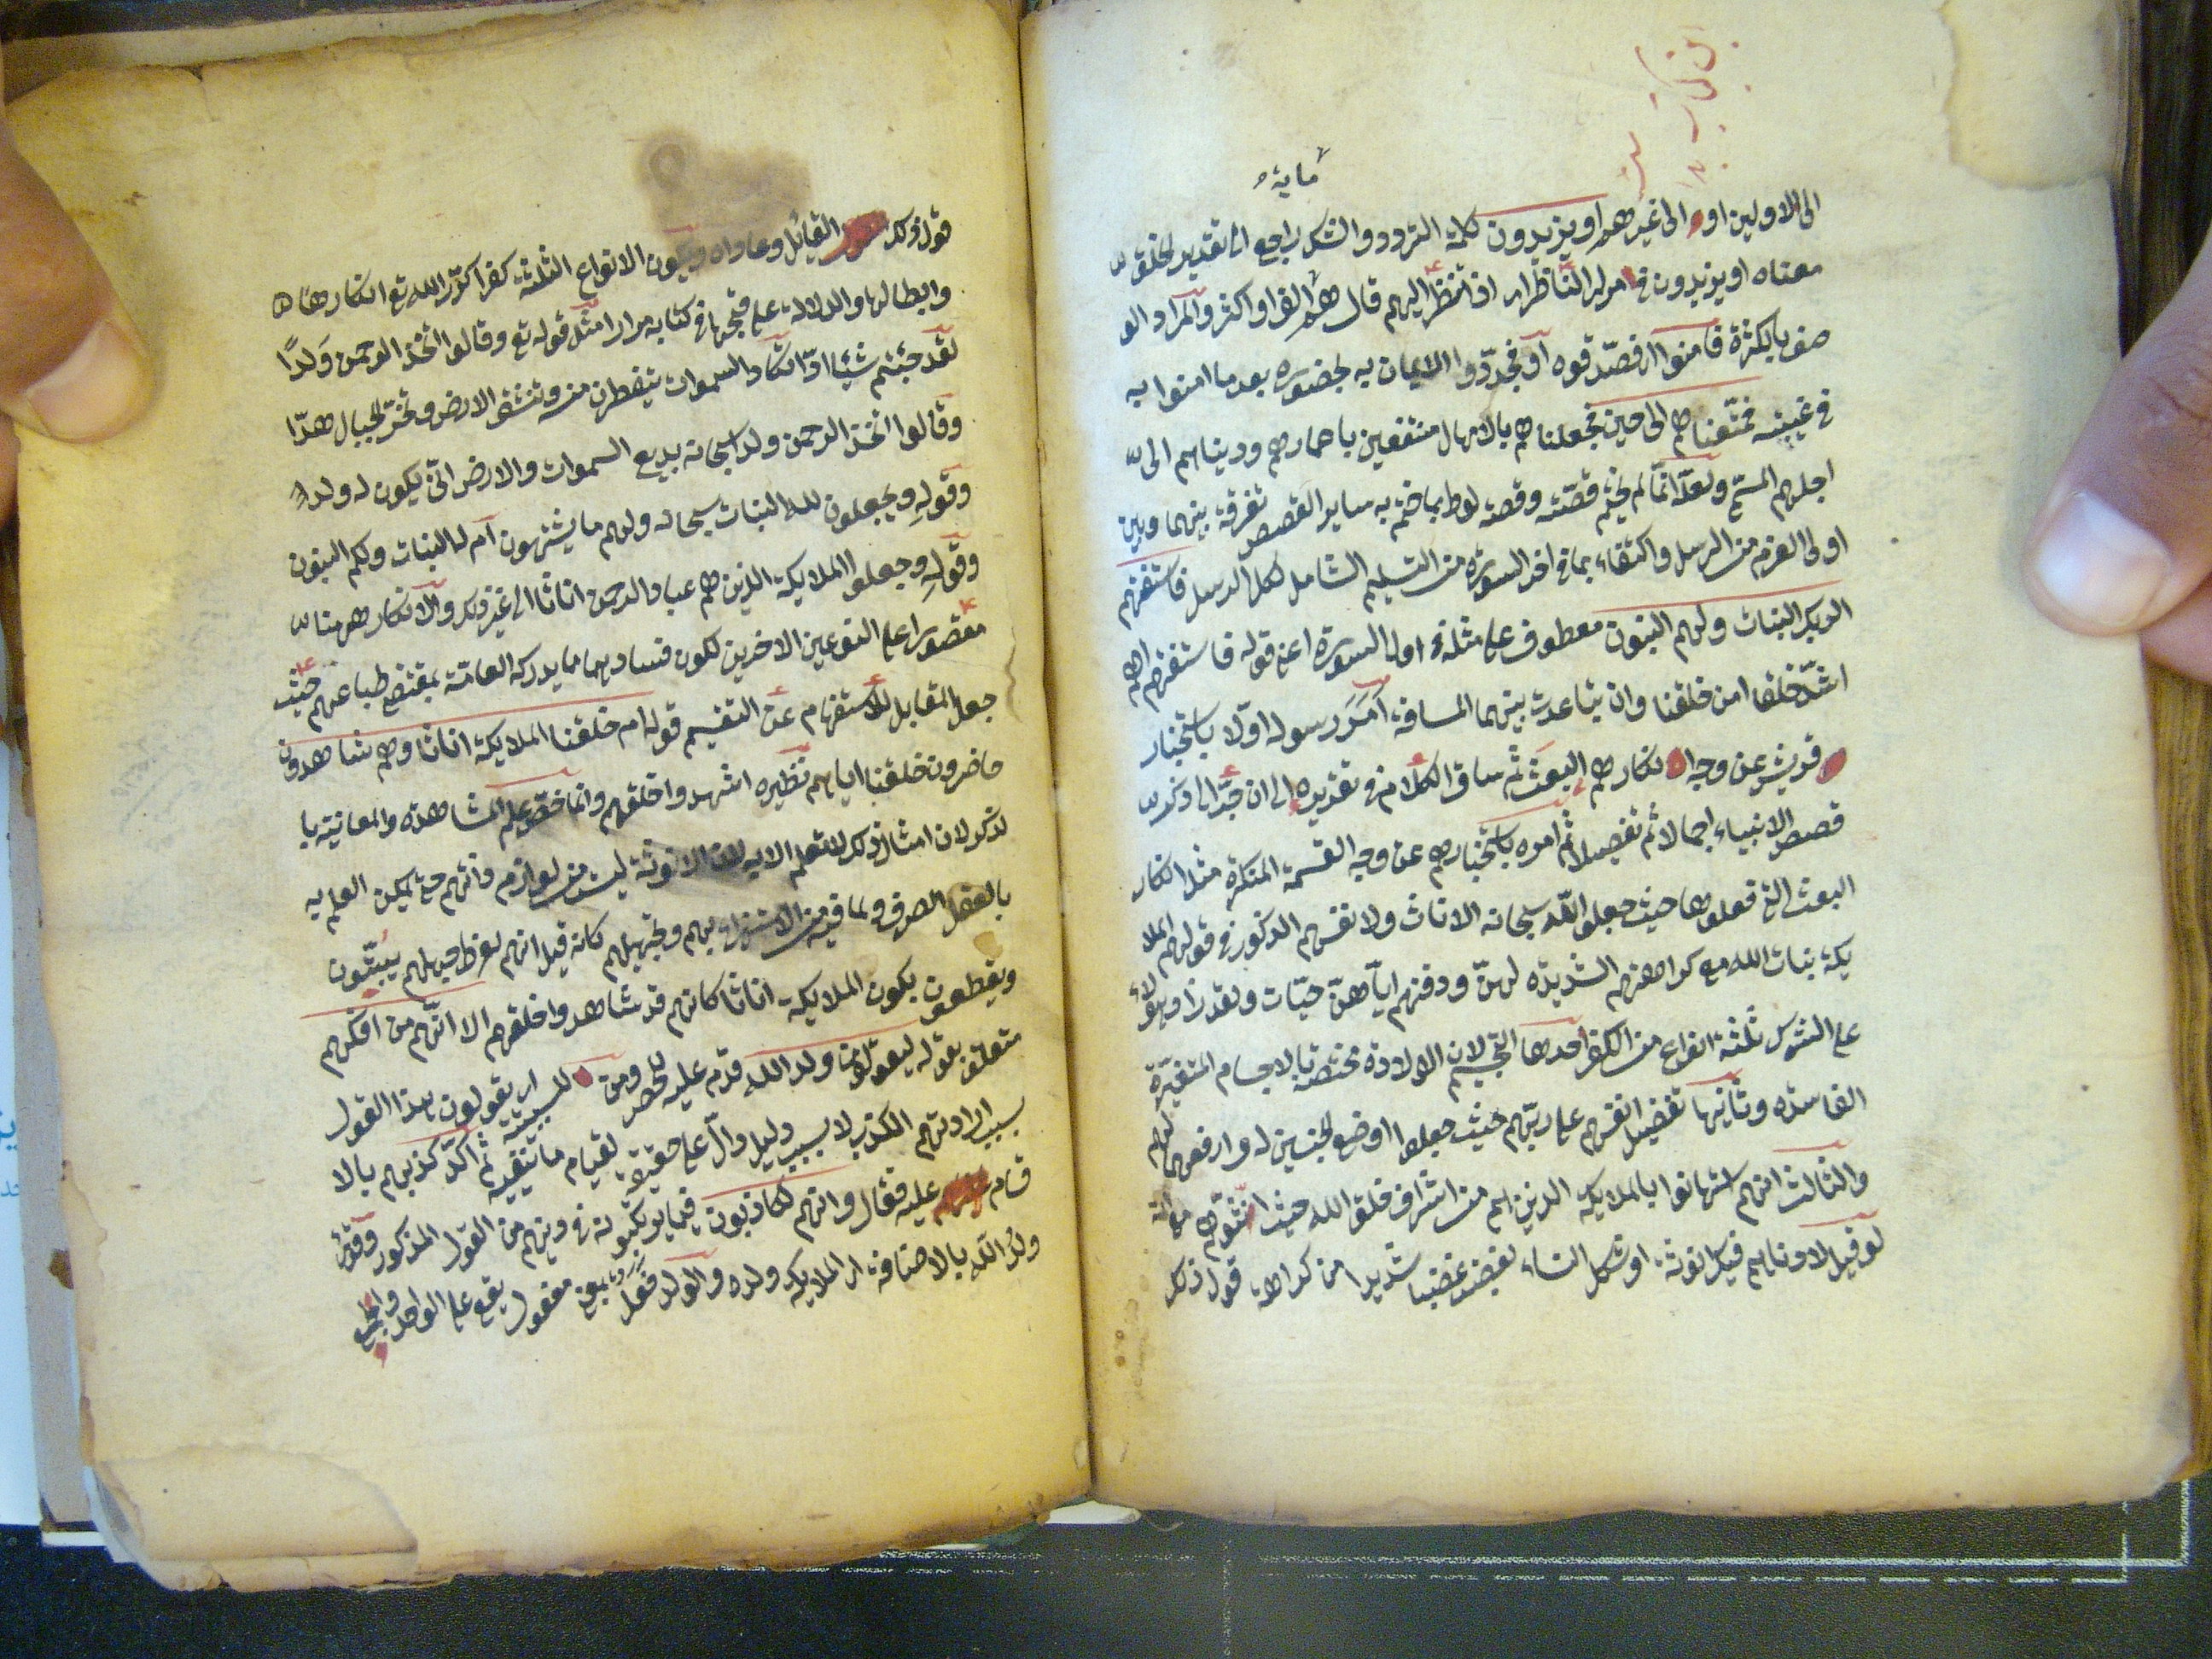 ماية
الى الاولين او الى غيرهم او يزيدون كلمة التردد والشك راجع الى تقدير الخلق
معناه او يزيدون في مراى الناظر اى اذا نظر اليهم قال هم مائة الف او اكثر والمراد الو
صف بالكثرة فامنوا اى فصدقوه او فجددوا الايمان به بحضوره بعد ما امنوا به
في غيبته فمتعناهم الى حين فجعلناهم بالامهال منتفعين باعمارهم ودنياهم الى
اجلهم المسمى ولعله انما لم يختم قصته وقصة لوط بما ختم به ساير القصص تفرقة بينهما وبين
اولى العزم من الرسل واكتفاء بما في اخر السورة من التسليم الشامل لكل الرسل فاستفتهم
الربك البنات ولهم البنون معطوف على مثله في اول السورة اعنى قوله فاستفتهم اهم
اشد خلقا ام من خلقنا وان تباعدت بينهما المسافة امر رسوله اولا باستخبار
قريش عن وجه انكارهم البعث ثم ساق الكلام في تقديره الى ان جر الى ذكر
قصص الانبياء اجمالا ثم تفصيلا ثم امره باستخبارهم عن وجه القسمة المنكرة مثل انكار
البعث التى فعلوها حيث جعلوا لله سبحانه الاناث ولانفسهم الذكور في قولهم الملا
يكة بنات الله مع كراهتهم الشديدة لهن ودفنهم اياهن حيات ولقد زادوا هؤلاء
على الشرك ثلثة انواع من الكفر احدها التجسيم لان الولادة مختصة بالاجسام المتغيرة
الفاسدة وثانيها تفضيل انفسهم على ربهم حيث جعلوا اوضع الجنسين له وارفعهما لهم
والثالث انهم استهانوا بالملايكة الذين هم من اشرف خلق الله حيث انثوهم مع انه
لو قيل لادناهم فيك انوثة او شكل النساء لغضب غضبا شديدا من كراهة قول ذلك
قول ذلك القائل وعاداه ولكون الانواع الثلثة كفرا كرر الله تع انكارها
وابطالها والدلالة على قبحها في كتابه مرارا مثل قوله تع وقالوا اتخذ الرحمن ولدا
لقد جئتم شيئا ادا تكاد السموات يتفطرن منه وتنشق الارض وتخر الجبال هدا
وقالوا اتخذ الرحمن ولدا سبحانه بديع السموات والارض انى يكون له ولد
وقوله ويجعلون لله البنات سبحانه ولهم ما يشتهون ام له البنات ولكم البنون
وقوله وجعلوا الملايكة الذين هم عباد الرحمن اناثا الى غير ذلك والانكار ههنا
مقصور على النوعين الاخيرين لكون فسادهما مما يدركه العامة بمقتضى طباعهم حيث
جعل المقابل للاستفهام عن التقسيم قوله ام خلقنا الملايكة اناثا وهم شاهدون
حاضرون خلقنا اياهم نظيره اشهدوا خلقهم وانما خص علم المشاهدة والمعاينة با
لذكر لان امثال ذلك لا تعلم الا به لان الانوثة ليست من لوازم ذاتهم حتى يمكن العلم به
بالعقل الصرف ولما فيه من الاستهزاء بهم وتجهيلهم كانه قيل انهم لفرط جهلهم يبتون
ويقطعون بكون الملايكة اناثا كانهم قد شاهدوا خلقهم الا انهم من افكهم
متعلق بقوله ليقولون ولد الله قدم عليه للحصر ومن للسببية اى يقولون هذا القول
بسبب ارادتهم الكذب لا بسبب دليل دال على حقيقته لقيام ما ينفيه ثم اكد كذبهم بالا
قسام عليه فقال وانهم لكاذبون فيما يرتكبونه في دينهم من القول المذكور وقرئ
ولد الله بالاضافة اى الملايكة ولده والولد فعل بمعنى مفعول يقع على الواحد والجمع